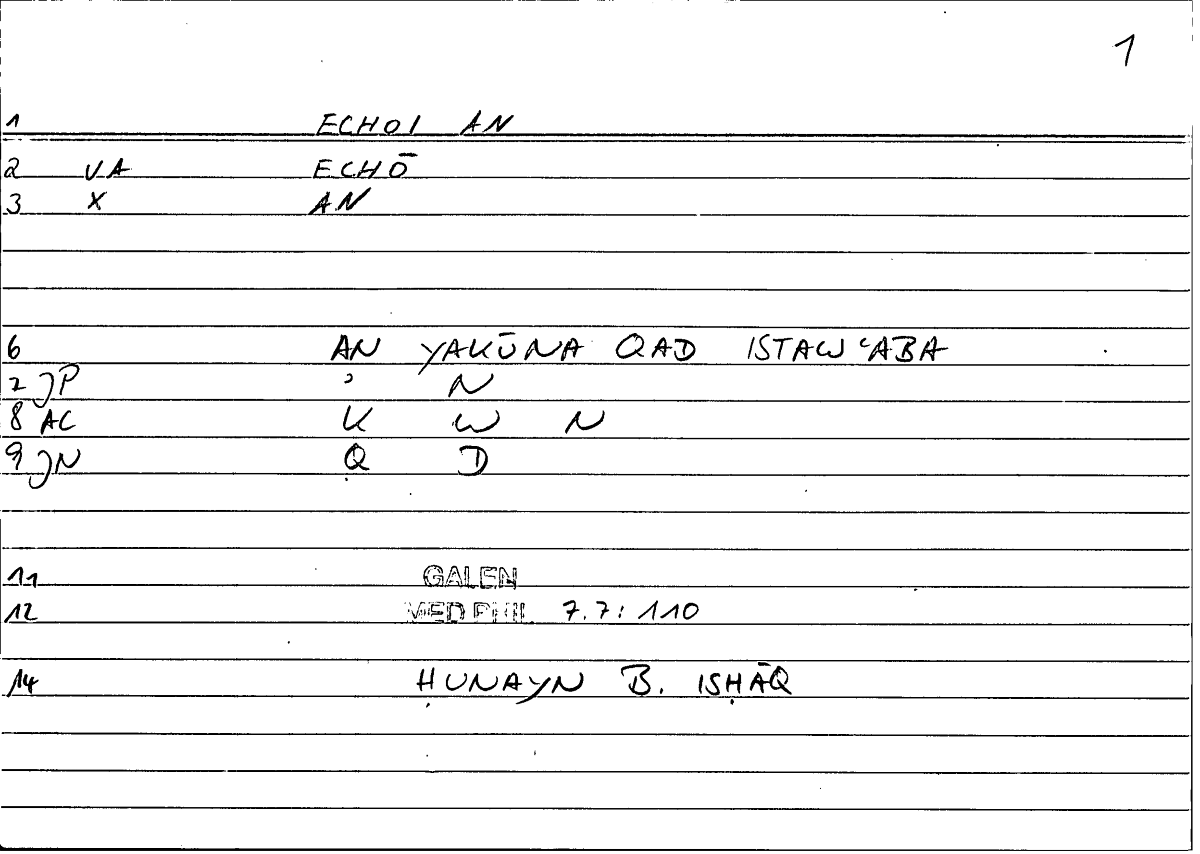 1
1 ECHOI AN
2 VA ECHŌ
3 X AN
6 AN YAKŪNA QAD ISTAWʿABA
7 JP ʾ N
8 AC K W N
9 JN Q D
11 GALEN
12 MED PHIL 7.7: 110
14 ḤUNAYN B. ISḤĀQ